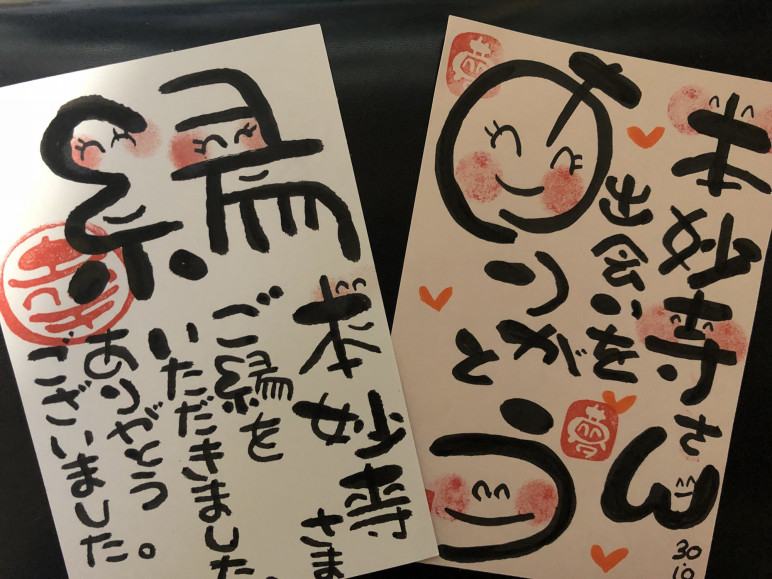 縁
本妙寺
さま
ご縁を
いただきました
ありがとう。
ございました。
本妙寺さん
出会いを
ありがとう
夢
夢
30
10